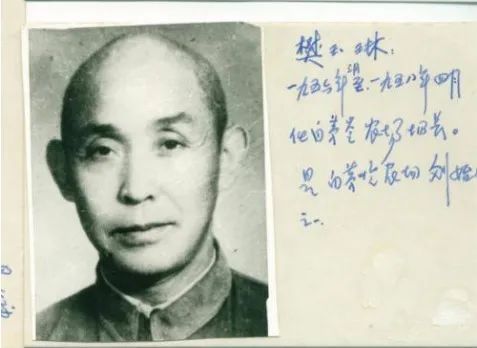 樊玉琳:
一九五六年3月至一九五八年四月
任白茅岺农场场长。
是白茅岭农场创始
之一.